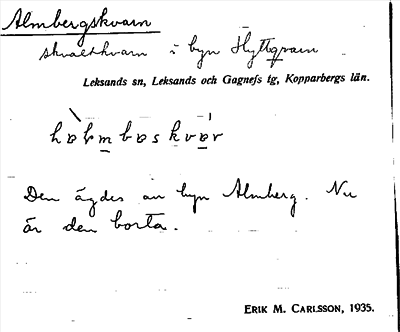 Almbergskvarn
skvaltkvarn i byn Hyttkvarn
Leksands sn, Leksands och Gagnefs tg, Kopparbergs län.
Den ägdes av byn Almberg. Nu
är den borta.
ERIK M. CARLSSON, 1935.